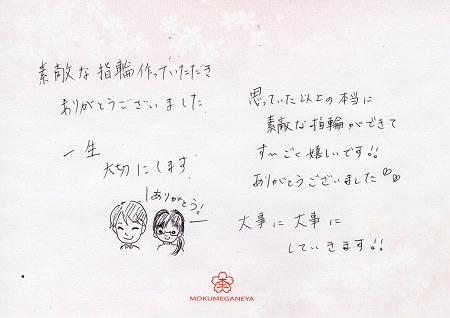 素敵な指輪作っていただき
ありがとうございました
一生
大切にします
ありがとう!
思っていた以上の本当に
素敵な指輪ができて
すーごく嬉しいです!!
ありがとうございました♡♡
大事に大事に
していきます!!
MOKUMEGANEYA